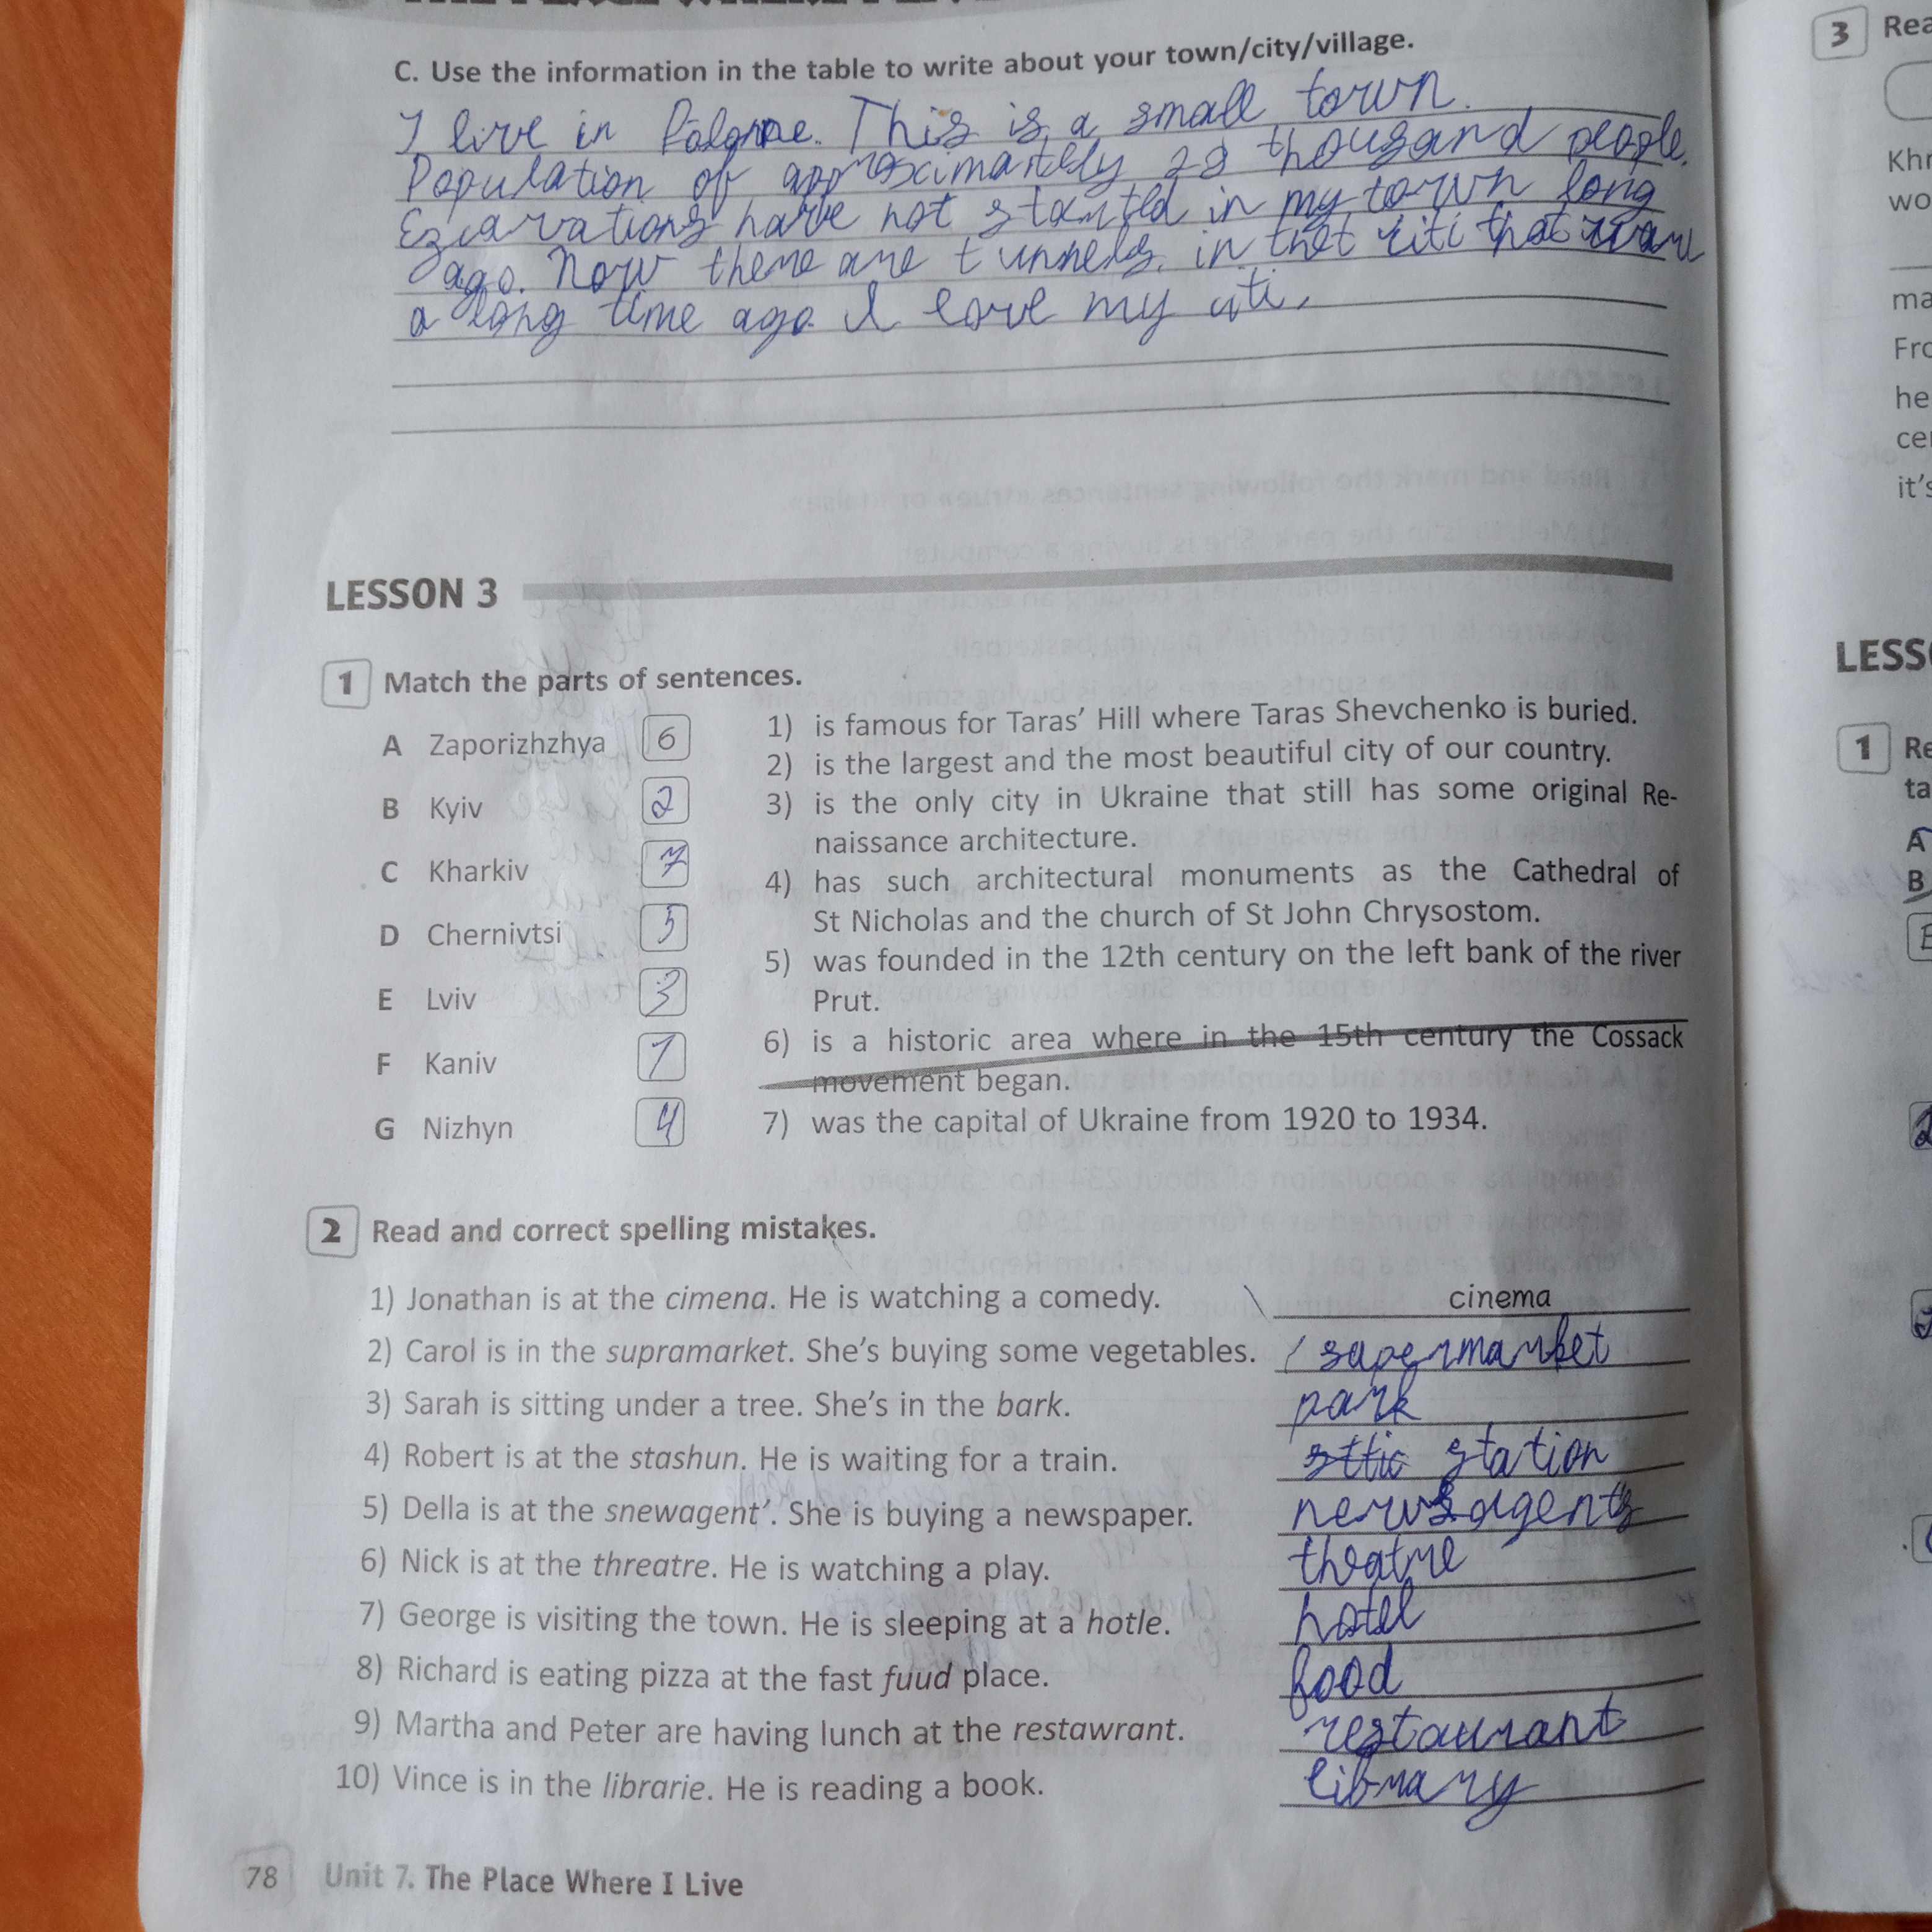 C. Use the information in the table to write about your town/city/village.
I live in This is a small town.
Population of approximantely thousand people.
Excavations have not started in my town long
ago. Now there are tunnels in thet citi that
a long time ago. I love my citi.
LESSON 3
1 Match the parts of sentences.
A Zaporizhzhya 6
B Kyiv 2
C Kharkiv 7
D Chernivtsi 5
E Lviv 3
F Kaniv 1
G Nizhyn 4
1) is famous for Taras' Hill where Taras Shevchenko is buried.
2) is the largest and the most beautiful city of our country.
3) is the only city in Ukraine that still has some original Re-
naissance architecture.
4) has such architectural monuments as the Cathedral of
St Nicholas and the church of St John Chrysostom.
5) was founded in the 12th century on the left bank of the river
Prut.
6) is a historic area where in the 15th century the Cossack
movement began.
7) was the capital of Ukraine from 1920 to 1934.
2 Read and correct spelling mistakes.
1) Jonathan is at the cimena. He is watching a comedy. cinema
2) Carol is in the supramarket. She's buying some vegetables. supermarket
3) Sarah is sitting under a tree. She's in the bark. park
4) Robert is at the stashun. He is waiting for a train. station
5) Della is at the snewagent'. She is buying a newspaper. newsagents
6) Nick is at the threatre. He is watching a play. theatre
7) George is visiting the town. He is sleeping at a hotle. hotel
8) Richard is eating pizza at the fast fuud place. food
9) Martha and Peter are having lunch at the restawrant. restaurant
10) Vince is in the librarie. He is reading a book. library
78 Unit 7. The Place Where I Live
3
Khr
wo
ma
he
it's
LESS
1
A
B